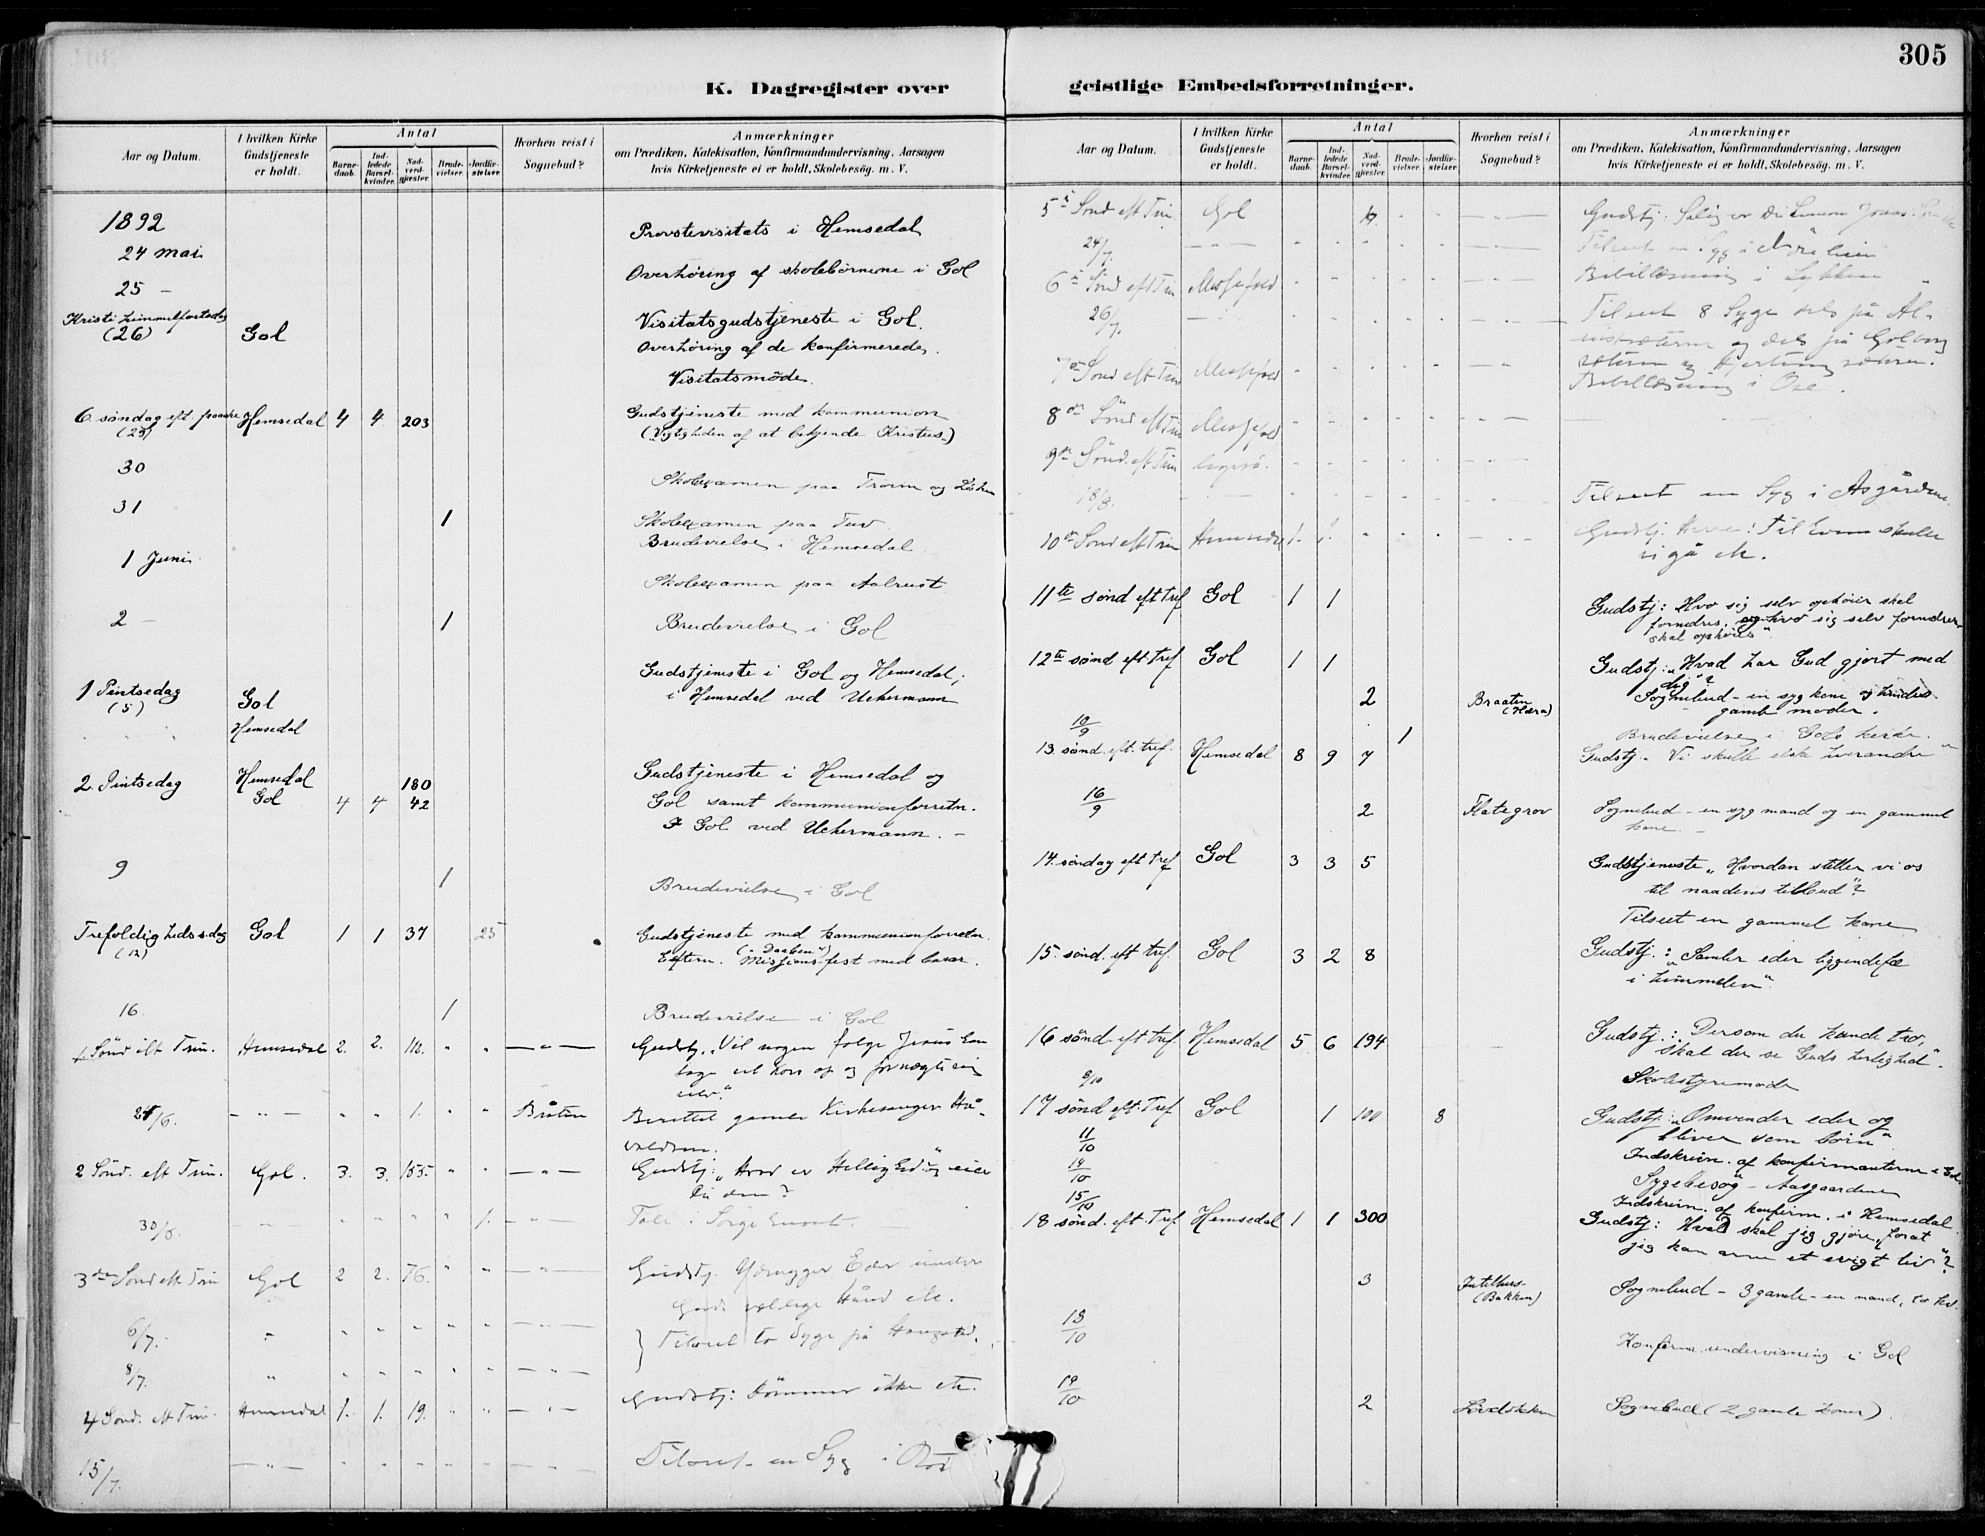 305
K. Dagregister over geistlige Embedsforretninger.
Aar og Datum.
I hvilken Kirke Gudstjeneste er holdt.
Antal
Barnedaab.
Indledede Barselkvinder.
Nadverdgjæster.
Brudevielser.
Jordfæstelser.
Hvorhen reist i Sognebud?
Anmærkninger
om Prædiken, Katekisation, Konfirmandundervisning, Aarsagen
hvis Kirketjeneste ei er holdt, Skolebesøg. m. V.
1892
24 mai Provstevisitats i Hemsedal
25 — Overhøring af skolebørnene i Gol
Kristi himmelfartsdag
(26) Gol Visitatsgudstjeneste i Gol.
Overhøring af de konfirmerede.
Visitatsmøde.
6 søndag eft. paaske Hemsedal 4 4 203 Gudstjeneste med kommunion
(29) (Vigtigheden af at bekjende Kristus.)
30 Skolexamen paa Trøim og
31 1 Skolexamen paa Tuv
Brudevielse i Hemsedal
1 Juni Skolexamen paa Aalrust
2 — 1 Brudevielse i Gol
1 Pintsedag Gol Gudstjeneste i Gol og Hemsedal;
(5) Hemsedal i Hemsedal ved Uchermann
2. Pintsedag Hemsedal 180 Gudstjeneste i Hemsedal og
Gol 4 4 42 Gol samt kommunionforretn.
I Gol ved Uchermann. —
9 1 Brudevielse i Gol
Trefoldighedsdag Gol 1 1 37 25 Gudstjeneste med kommunionforretn.
(12) („Daaben“)
Eftern. Missionsfest med basar.
16. 1 Brudevielse i Gol
1 Sönd eft Trin. Hemsedal 2. 2. 110. " " — " — Gudstj. „Vil nogen følge Jesus
kors op og fornægte sig
selv.“
/6. — " — " " 1. " " Bråten Berettet gamle Kirkesanger
2 Sönd. eft Trin. Gol. 3. 3. 155. " " — " — Gudstj: „Hvad er Hellig eier
Du den?
30/6. 1. — " — Tale i Sørgehuset.
3die Sönd eft Trin Gol 2 2. 76. " " Gudstj. Ydmyger Eder under
Guds vældige Hånd etc.
6/7. " Tilseet to Syge på
8/7. "
4 Sönd. eft Trin. Hemsedal 1. 1. 19. " " — " — Gudstj: Dömmer ikke etc.
15/7. — " — Tilseet en Syg i
Aar og Datum.
I hvilken Kirke Gudstjeneste er holdt.
Antal
Barnedaab.
Indledede Barselkvinder.
Nadverdgjæster.
Brudevielser.
Jordfæstelser.
Hvorhen reist i Sognebud?
Anmærkninger
om Prædiken, Katekisation, Konfirmandundervisning, Aarsagen
hvis Kirketjeneste ei er holdt, Skolebesøg. m. V.
5te Sönd eft Trin Gol Gudstj: Salig er Du Simon Jonas
24/7. Tilseet en Syg i
6te Sönd eft Trin Messefald Bibellæsning i Lykkja
26/7. Tilseet 8 Syge dels på
og dels på
7de Sönd eft Trin Messefald Bibellæsning i
8de Sönd eft Trin Messefald
9de Sönd. eft Trin
18/8. Tilseet en Syg i Åsgårdene
10de Sönd eft Trin Hemsedal 1. 1. Gudstj. Herre! Til hvem skulle
vi gå etc.
11te sønd eft Tref Gol 1 1 Gudstj: Hvo sig selv ophøier skal
fornedres, og hvo sig selv fornedrer,
skal ophøies“.
12te sønd eft Tref Gol 1 1 Gudstj: „Hvad har Gud gjort med
dig“?
2 Braaten Sognebud — en syg kone og hendes
gamle moder.
10/9 1 Brudevielse i Gols kirke.
13 sønd. eft. tref. Hemsedal 8 9 7 Gudstj. Vi skulle elske hverandre“
16/9 2 Flategrov Sognebud — en syg mand og en gammel
kone. —
14. søndag eft Tref Gol 3 3 5 Gudstjeneste „Hvordan stiller vi os
til naadens tilbud“?
Tilseet en gammel kone
15. sønd. eft tref. Gol 3 2 8 Gudstj.: Samler eder liggendefæ
i himmelen“.
16 sønd. eft tref. Hemsedal 5 6 194 Gudstj.: Dersom du kunde tro,
skal du se Guds herlighed“.
8/10 Skolestyremøde
17 sønd eft. Tref Gol 1 100 8 Gudstj: „Omvender eder og
bliver som børn“
11/10 Indskrivn. af konfirmanterne i Gol.
14/10 Sygebesøg — Aasgaardene
15/10 Indskrivn. af konfirm. i Hemsedal
18 sønd. eft. Tref. Hemsedal 1 1 300 Gudstj: Hvad skal jeg gjøre, forat
jeg kan arve et evigt liv“?
3 (Bakken) Sognebud — 3 gamle — en mand, to kv.
18/10 Konfirm. undervisning i Gol
19/10 2 Sognebud (2 gamle koner).